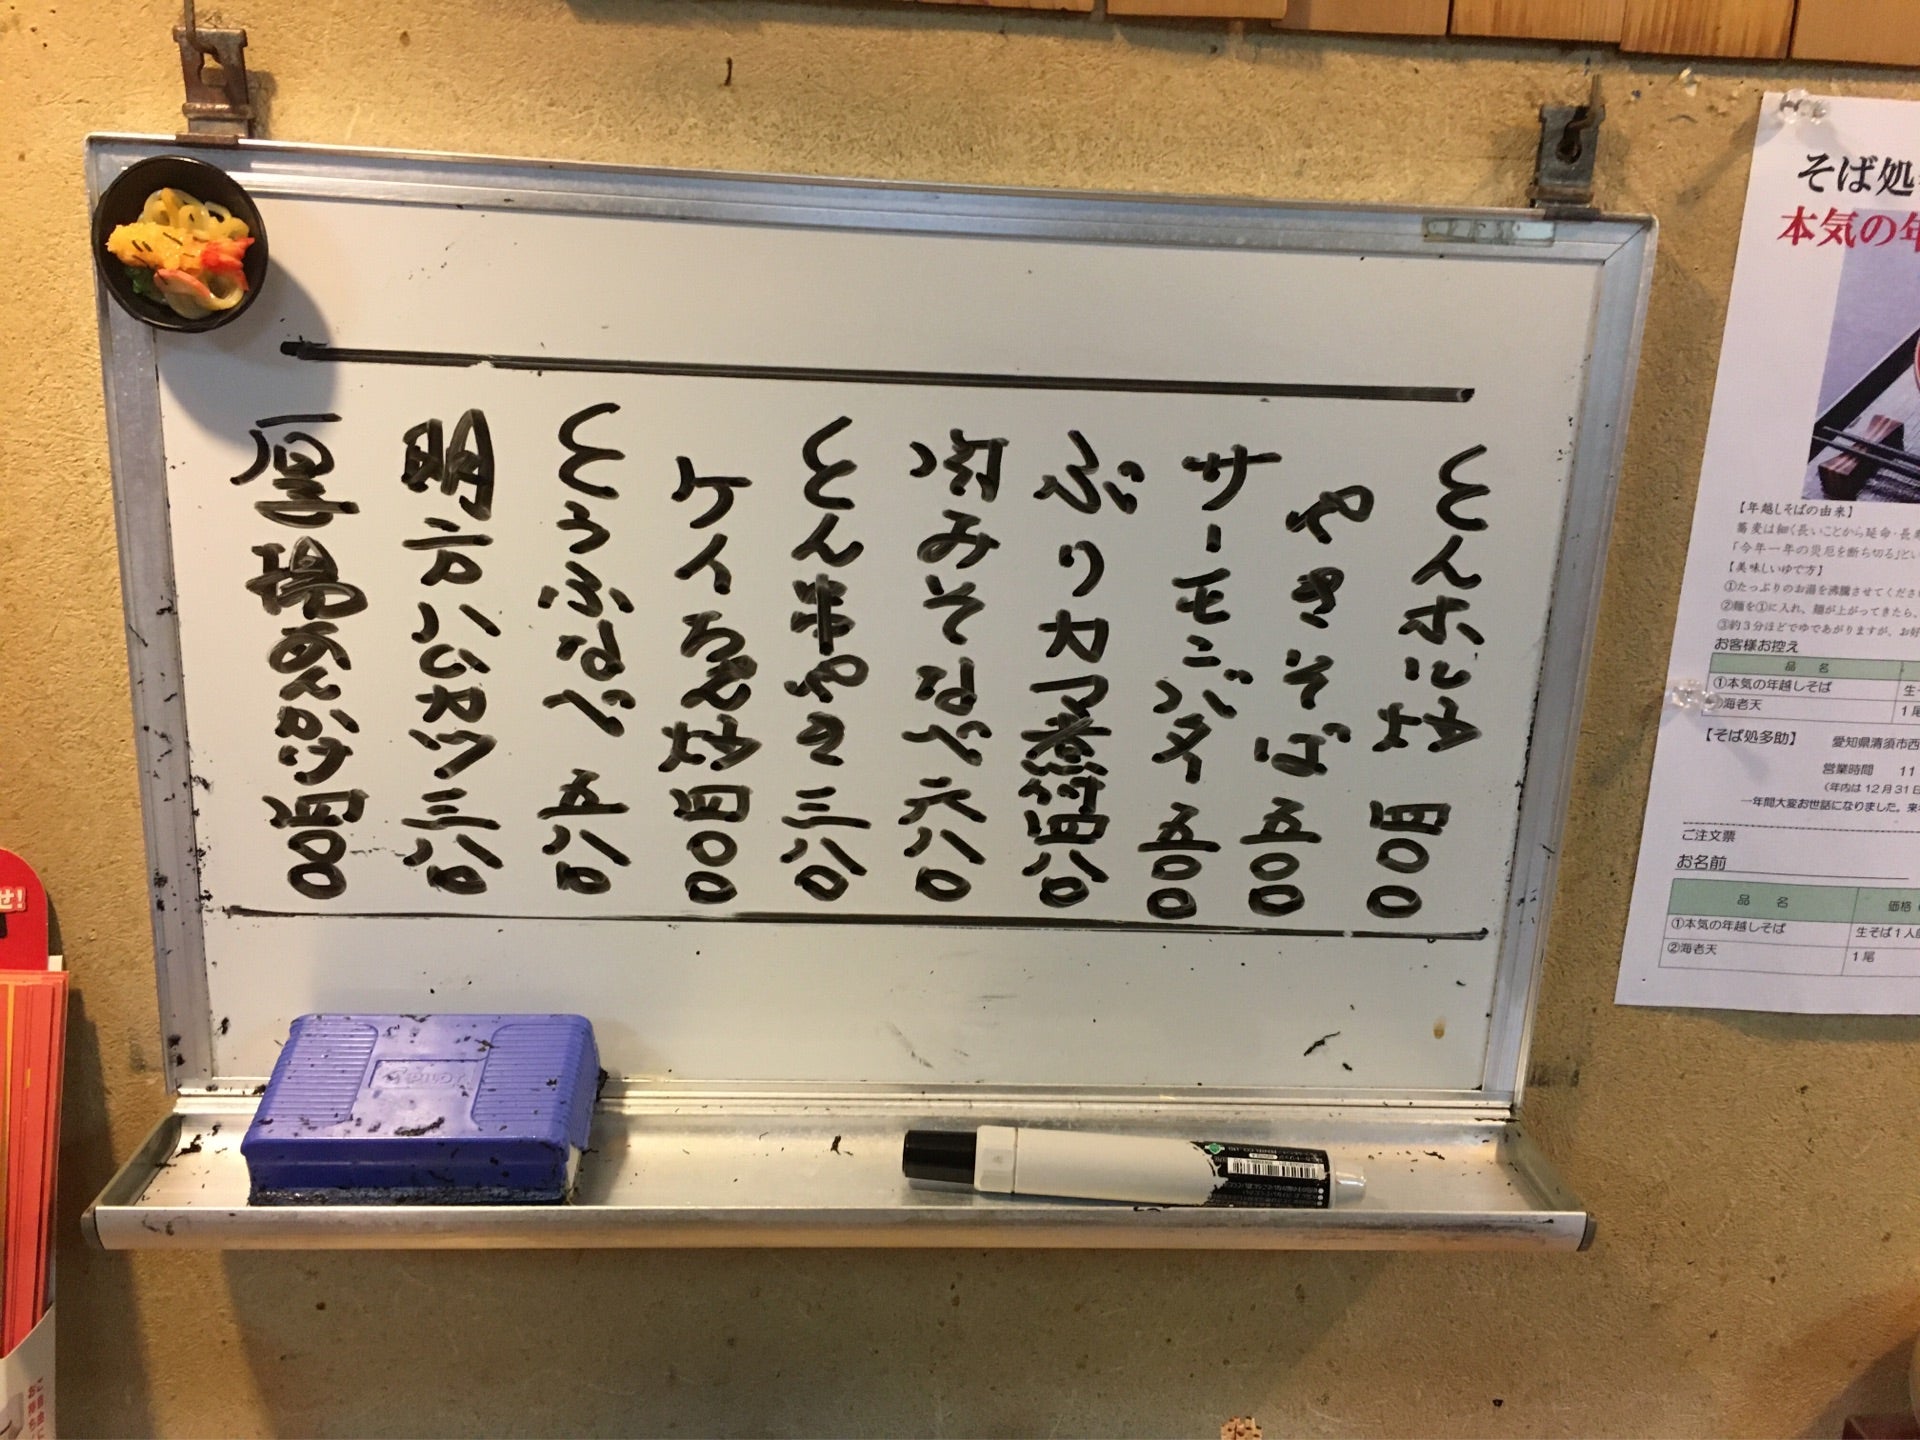 とんホルモン炒 四〇〇
やきそば 五〇〇
サーモンバター 五〇〇
ぶりカマ煮付 四八〇
肉みそなべ 六八〇
とん串やき 三八〇
ケイちゃん炒 四〇〇
とうふなべ 五八〇
明方ハムカツ 三八〇
厚揚あんかけ 四〇〇
そば処
本気の年
【年越しそばの由来】
蕎麦は細く長いことから延命・長寿
「今年一年の災厄を断ち切る」とい
【美味しいゆで方】
①たっぷりのお湯を沸騰させてくださ
②麺を①に入れ、麺が上がってきたら、
③約3分ほどでゆであがりますが、お好
お客様お控え
品 名
①本気の年越しそば 生
②海老天 1尾
【そば処多助】 愛知県清須市西
営業時間 11
(年内は12月31日
一年間大変お世話になりました。来
ご注文票
お名前
品 名 価格
①本気の年越しそば 生そば1人
②海老天 1尾
PILOT
せ!